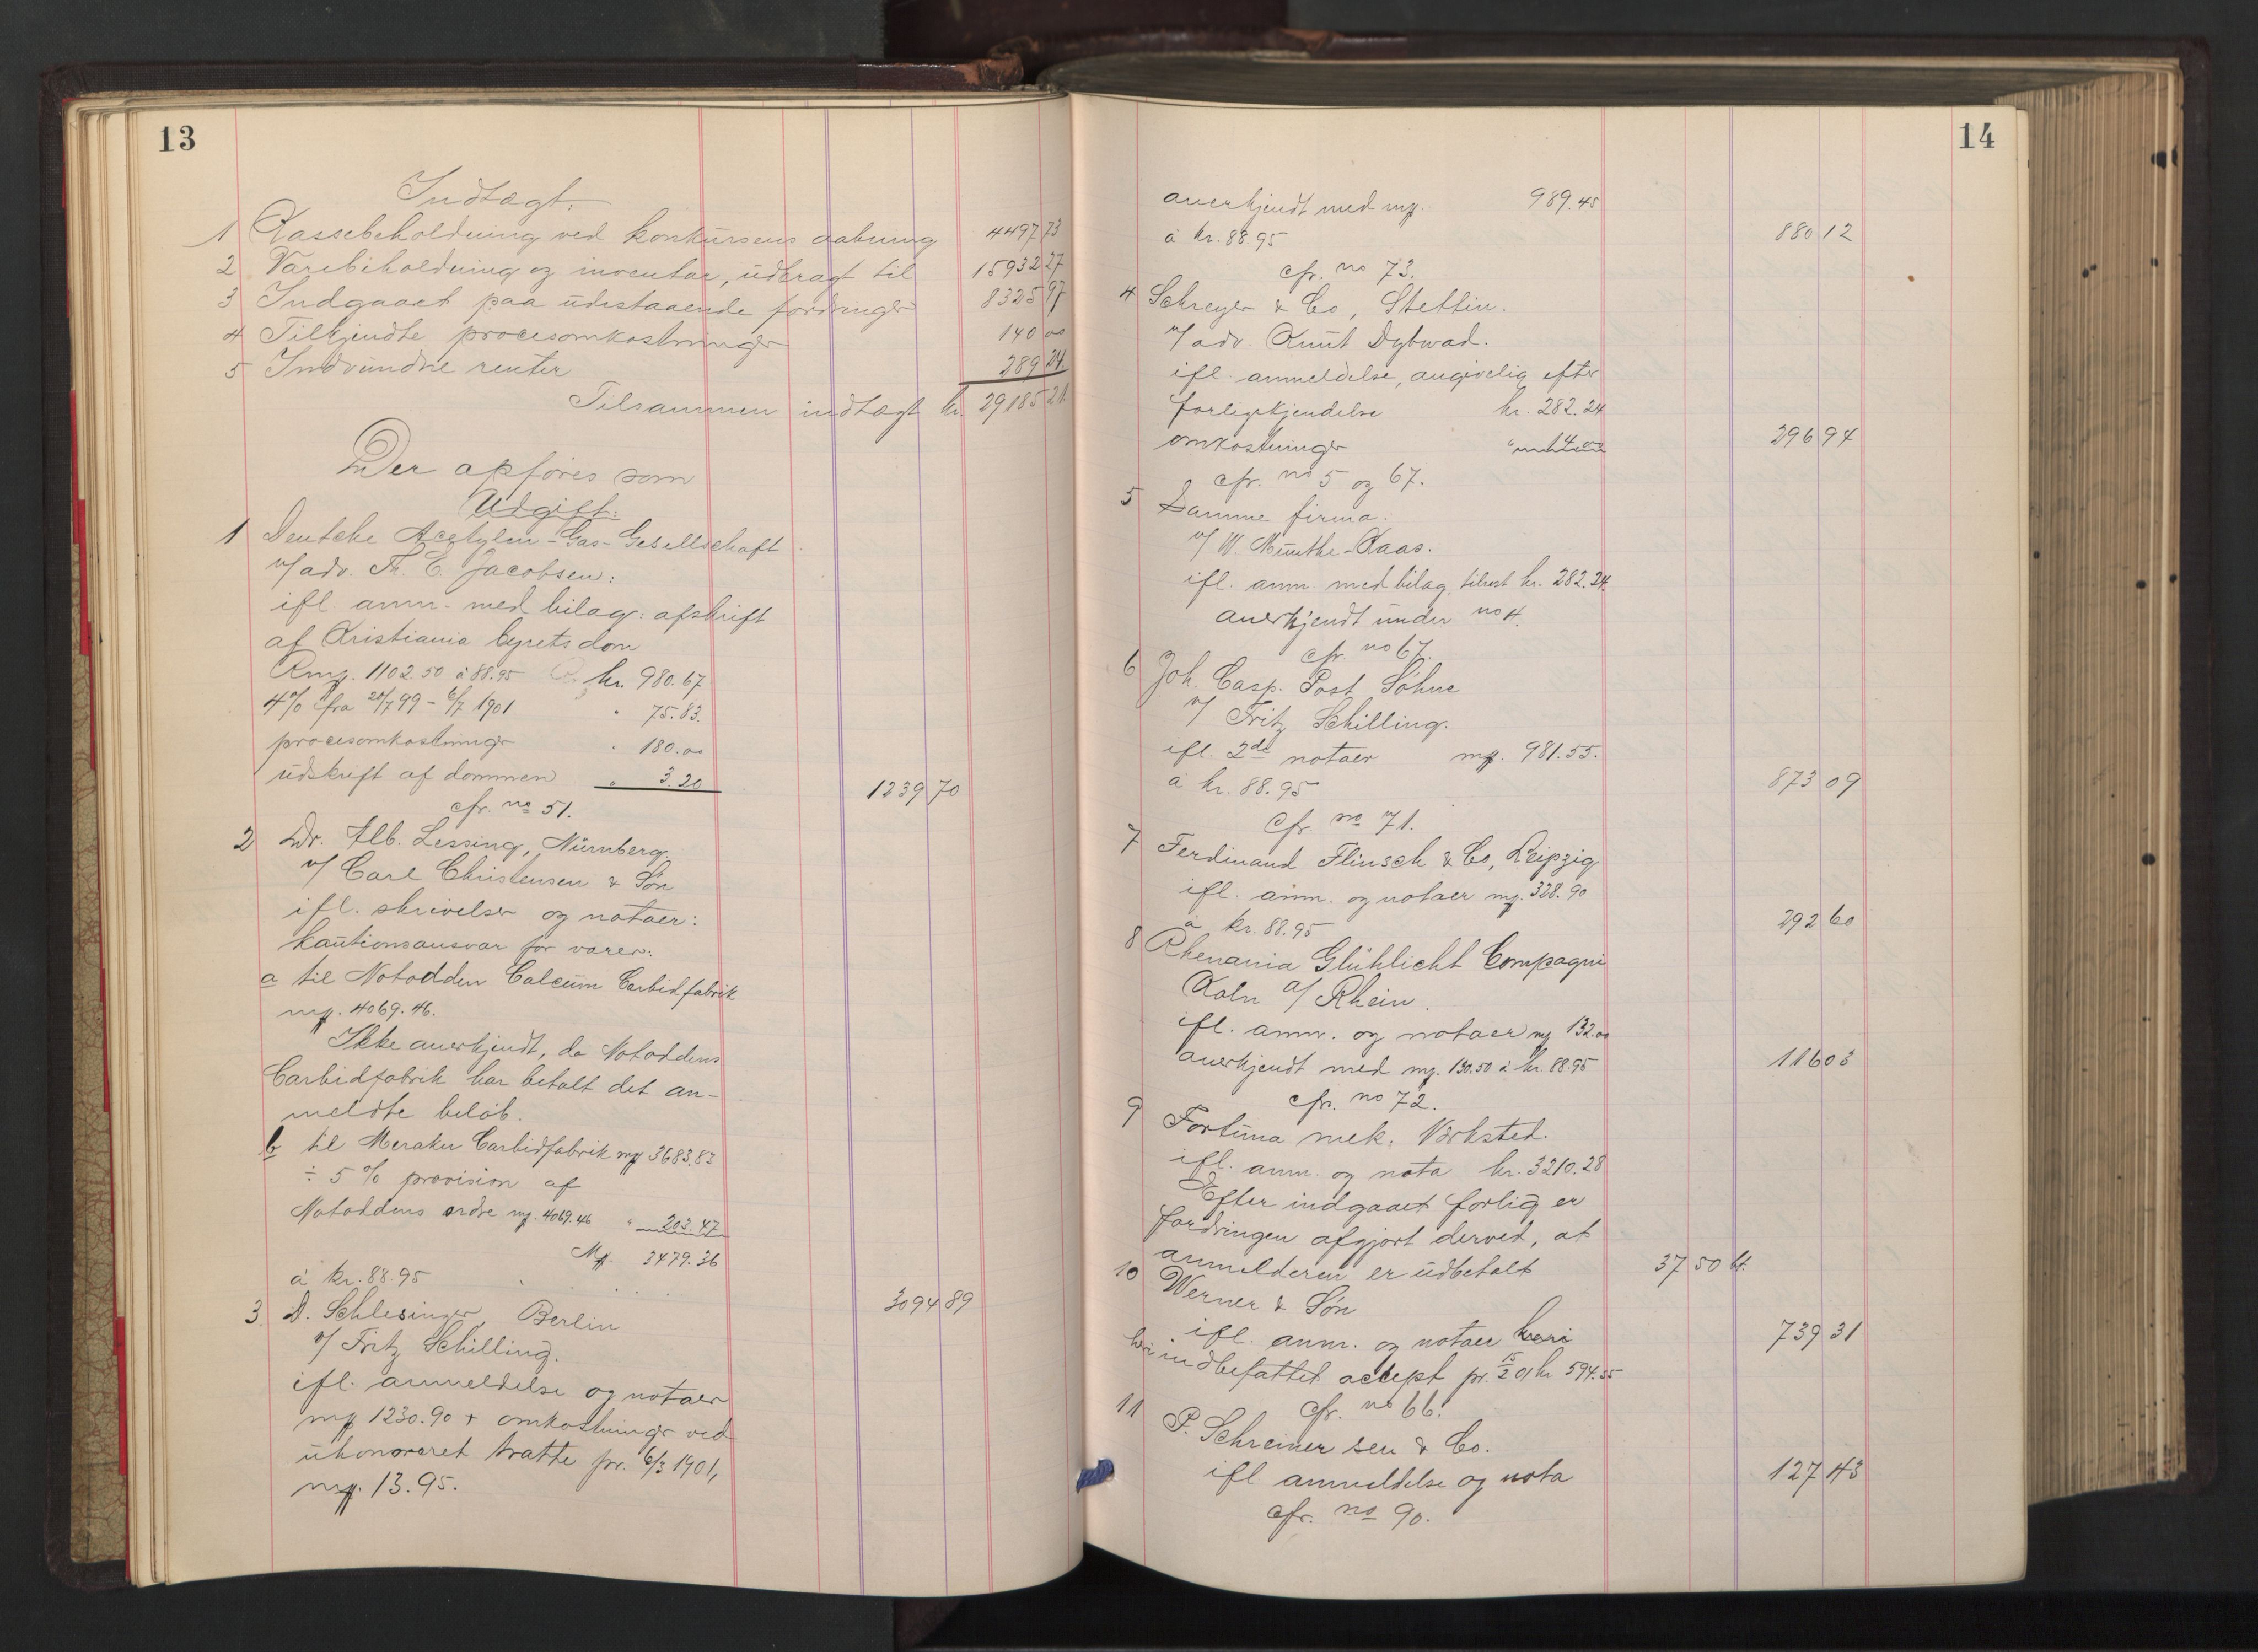 13
Indtægt:
1 Kassebeholdning ved konkursens aabning 4497 73
2 Varebeholdning og inventar, udbragt til 15932 27
3 Indgaaet paa udestaaende fordringer 8325 97
4 Tilkjendte procesomkostninger 140 00
5 Indvundne renter 289 24
Tilsammen indtægt kr. 29185 21
Der opføres som
Udgift:
1 Deutche Acetylen-Gas-Gesellschaft
v/adv. Th. E. Jacobsen:
ifl. anm. med bilag: afskrift
af Kristiania byrets dom
Rmg. 1102.50 à 88.95 kr. 980.67
4% fra 20/7 99 - 6/7 1901 " 75.83.
procesomkostninger " 180.00
udskrift af dommen " 3.20 1239 70
cfr. no 51.
2 Dr. Alb. Lessing, Nürnberg.
v/ Carl Christensen & Søn
ifl. skrivelser og notaer:
kautionsansvar for varer:
a til Notodden Calcium Carbidfabrik
mg. 4069.46.
Ikke anerkjendt, da Notoddens
Carbidfabrik har betalt det an-
meldte beløb.
b til Meraker Carbidfabrik mg 3683.83
÷ 5% provision af
Notoddens ordre mg. 4069.46 " 203.47
Mg. 3479.36
à kr. 88.95 3094 89
3. D. Schlesinger, Berlin
v/ Fritz Schilling.
ifl. anmeldelse og notaer
mg 1230.90 + omkostninger ved
uhonoreret tratte pr. 6/3 1901,
mg. 13.95.
14
anerkjendt med mg. 989.45
à kr. 88.95 880 12
cfr. no 73.
4 Schreyer & Co, Stettin.
v/adv. Knut Dybwad.
ifl. anmeldelse, angivelig efter
forligskjendelse kr. 282.24
omkostninger " 14.00 296 94
cfr. no 5 og 67.
5 Samme firma:
v/ W. Munthe-Kaas.
ifl. anm. med bilag, tilsvt kr. 282.24.
anerkjendt under no 4.
cfr. no 67.
6 Joh. Casp. Post Söhne
v/ Fritz Schilling.
ifl. 2de notaer mg. 981.55.
à kr. 88.95 873 09
cfr. no 71.
7 Ferdinand Flinsch & Co, Leipzig
ifl. anm. og notaer mg. 328.90
à kr. 88.95 292 60
8 Rhenania Glühlicht Compagni
Køln a/ Rhein.
ifl. anm. og notaer mg 132.00
anerkjendt med mg. 130.50 à kr. 88.95 116 03
cfr. no 72.
9 Fortuna mek. Værksted.
ifl. anm. og nota kr. 3210.28
Efter indgaaet forlig er
fordringen afgjort derved, at
anmelderen er udbetalt 37 50 bt.
10 Werner & Søn
ifl. anm. og notaer heri 739 31
heri indbefattet accept pr. 15/2 01 kr 594.55
cfr. no 66.
11 P. Schreiner sen & Co.
ifl anmeldelse og nota 127 43
cfr. no 90.